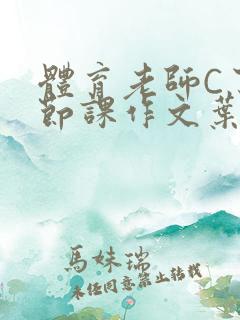 體育老師C
節課作文葉
馬妹瑞
未经同意禁止转载